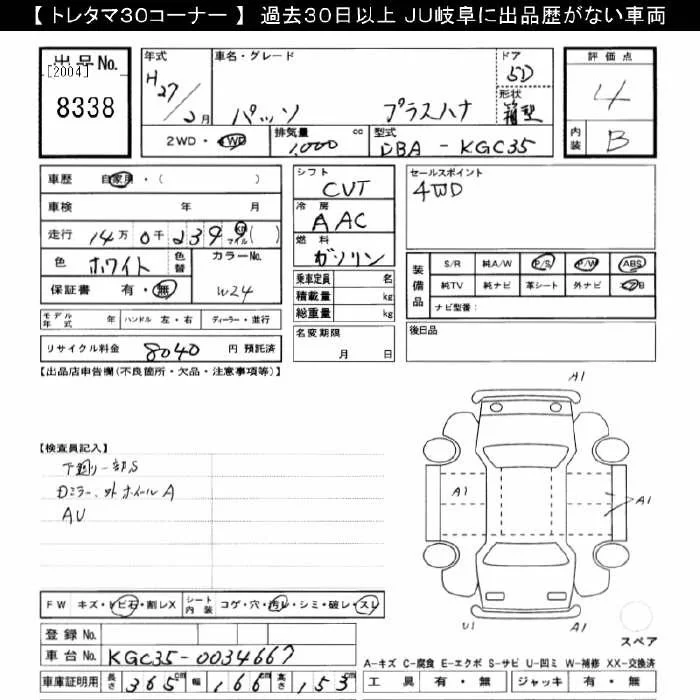 【 トレタマ30コーナー 】 過去30日以上 JU岐阜に出品歴がない車両
出品No. [2004] 8338
年式 H27/2月
車名・グレード パッソ プラスハナ
ドア 5D
形状 箱型
評価点 4
内装 B
2WD・4WD
排気量 1,000 cc
型式 DBA-KGC35
車歴 自家用・( )
車検 年 月
走行 14万0千239 km マイル ( )
色 ホワイト 色替
カラーNo. W24
保証書 有・無
モデル年式 年 ハンドル 左・右 ディーラー・並行
リサイクル料金 8040 円 預託済
シフト CVT
冷房 AAC
燃料 ガソリン
乗車定員 名
積載量 kg
総重量 kg
名変期限 月 日
セールスポイント
4WD
装備品 S/R 純A/W P/S P/W ABS
純TV 純ナビ 革シート 外ナビ
ナビ型番:
後日品
【出品店申告欄(不良箇所・欠品・注意事項等)】
【検査員記入】
下廻り一部S
Dミラー、外ホイールA
AU
A1
A1
A1
U1
A1
FW キズ・トビ石・割レX
シート内装 コゲ・穴・汚レ・シミ・破レ・スレ
スペア
登録No.
車台No. KGC35-0034667
A-キズ C-腐食 E-エクボ S-サビ U-凹ミ W-補修 XX-交換済
車庫証明用 長さ 365cm 幅 166cm 高さ 153cm
工具 有・無 ジャッキ 有・無